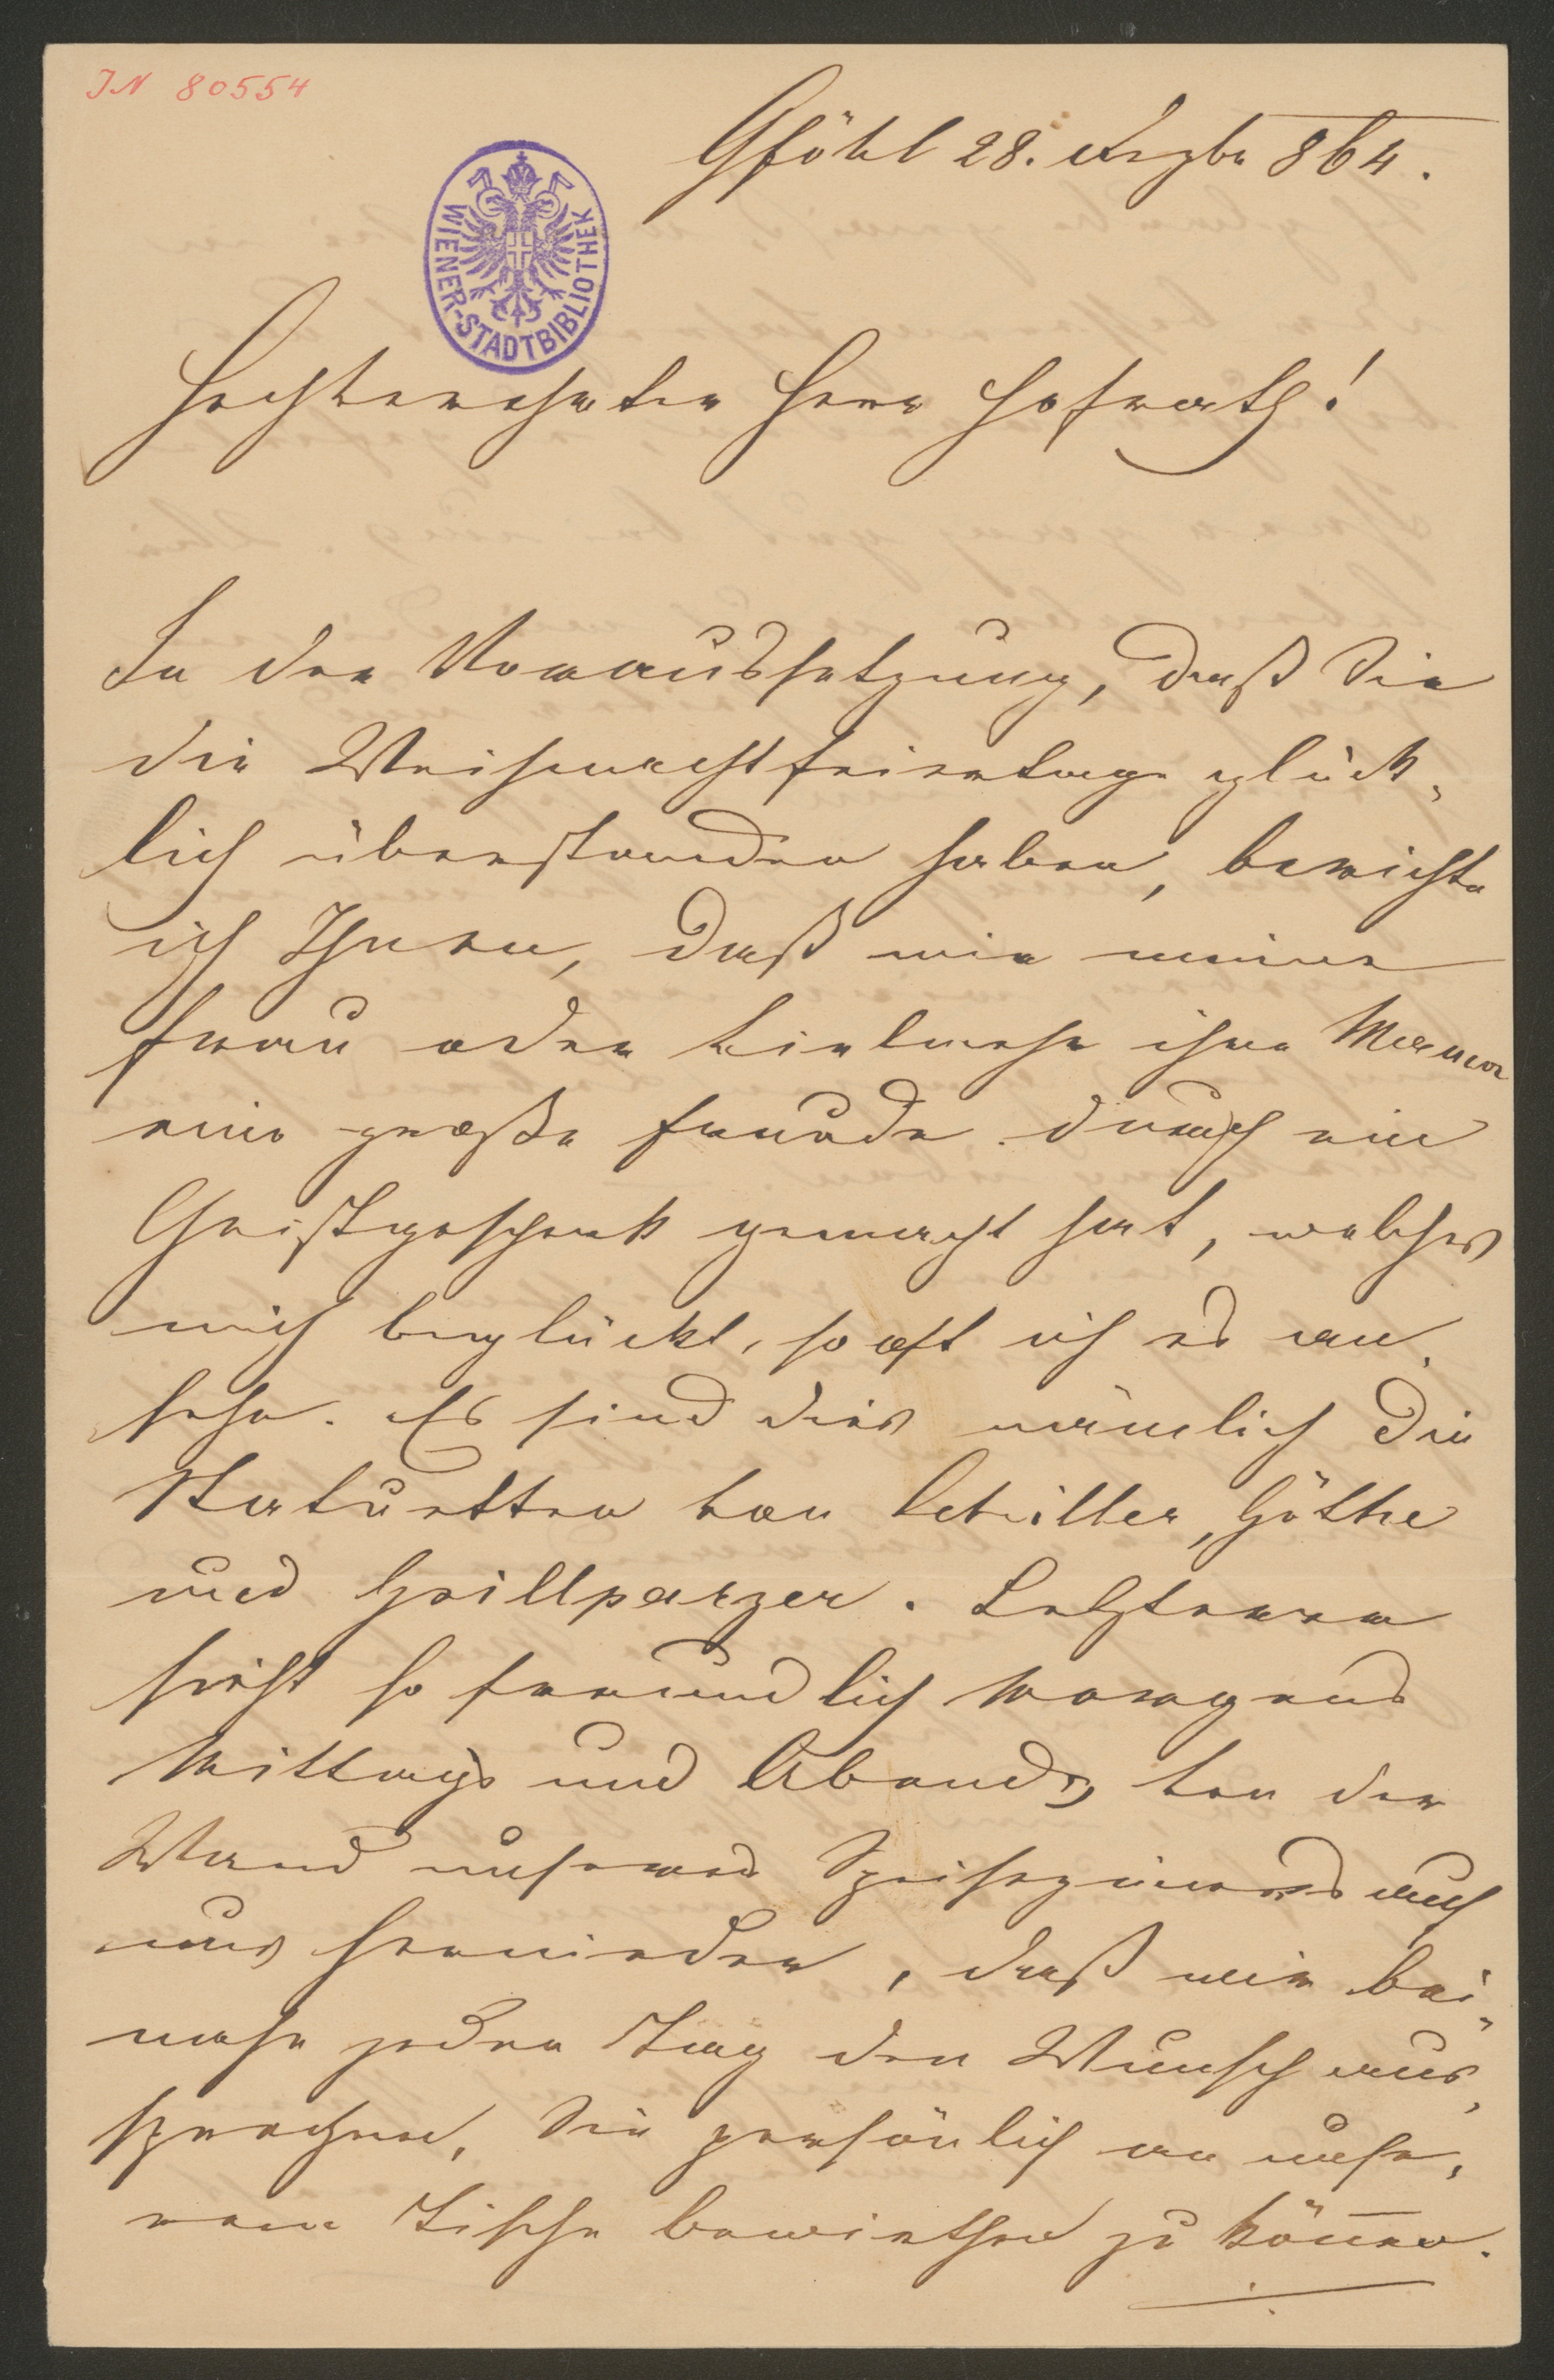 IN 80554
Gföhl 28. Dezbr 864.
WIENER-STADTBIBLIOTHEK
Hochverehrter Herr Hofrath!
In der Voraussetzung, daß Sie
die Weihnachtfeiertage glück„
lich überstanden haben, berichte
ich Ihnen, daß mir meine
Frau oder vielmehr ihre Mama
eine große Freude durch ein
Christgeschenk gemacht hat, welches
mich beglückt, so oft ich es an„
sehe. Es sind dies nämlich die
Statuetten von Schiller, Göthe
und Grillparzer. Letzterer
sieht so freundlich Morgens
Mittags und Abends, von der
Wand unseres Speisezimers auf
uns hernieder, daß wir bei„
nahe jeden Tag den Wunsch aus„
sprechen, Sie persönlich an unse„
rem Tische bewirthen zu können.